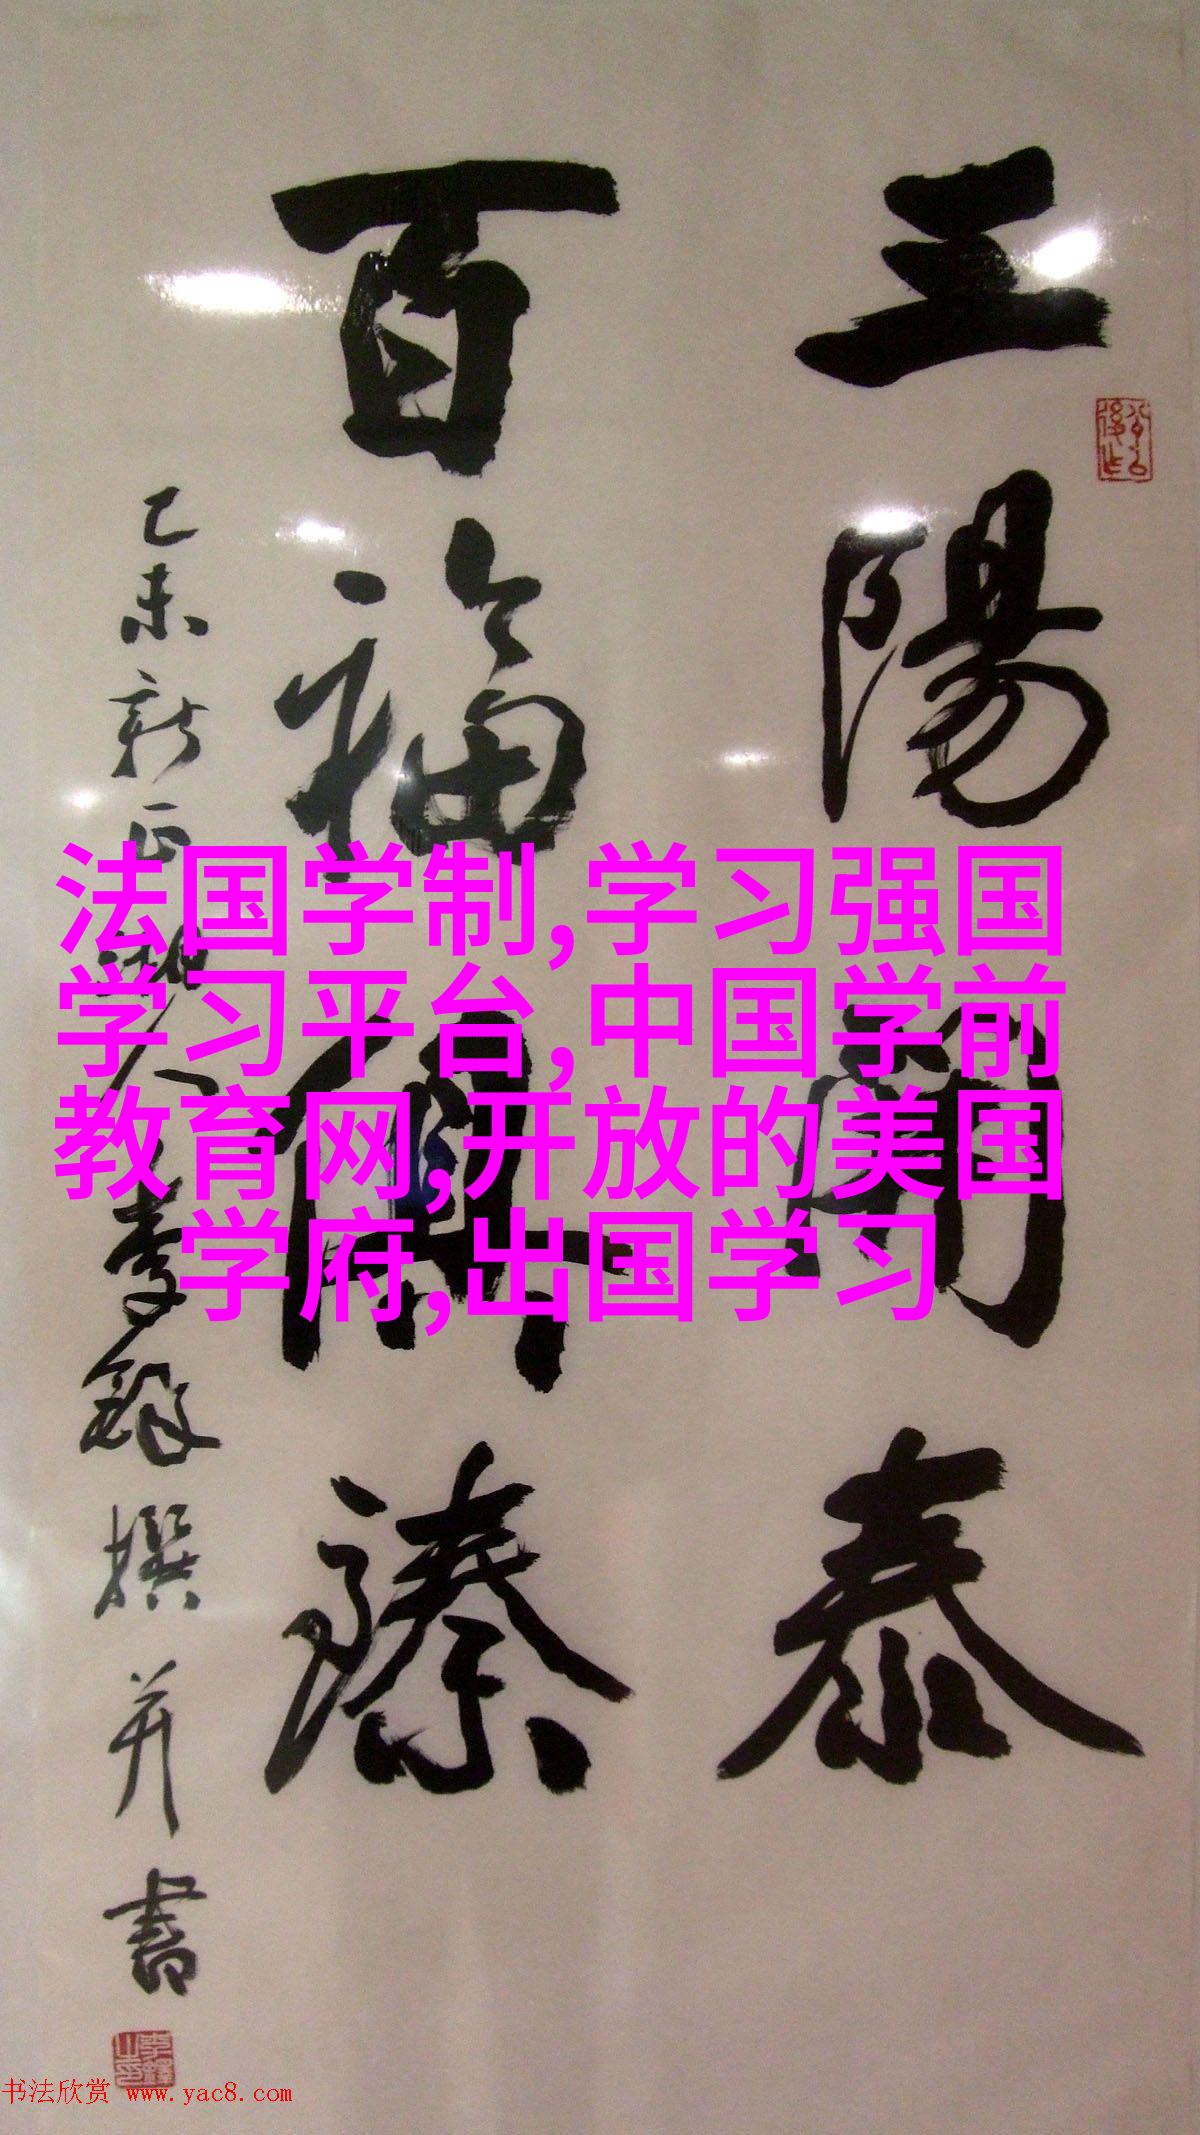 三陽開泰
百福俱臻
乙未新正湘人李鐸撰并書
法国学制,学习强国
学习平台,中国学前
教育网,开放的美国
学府,出国学习
书法欣赏 www.yac8.com